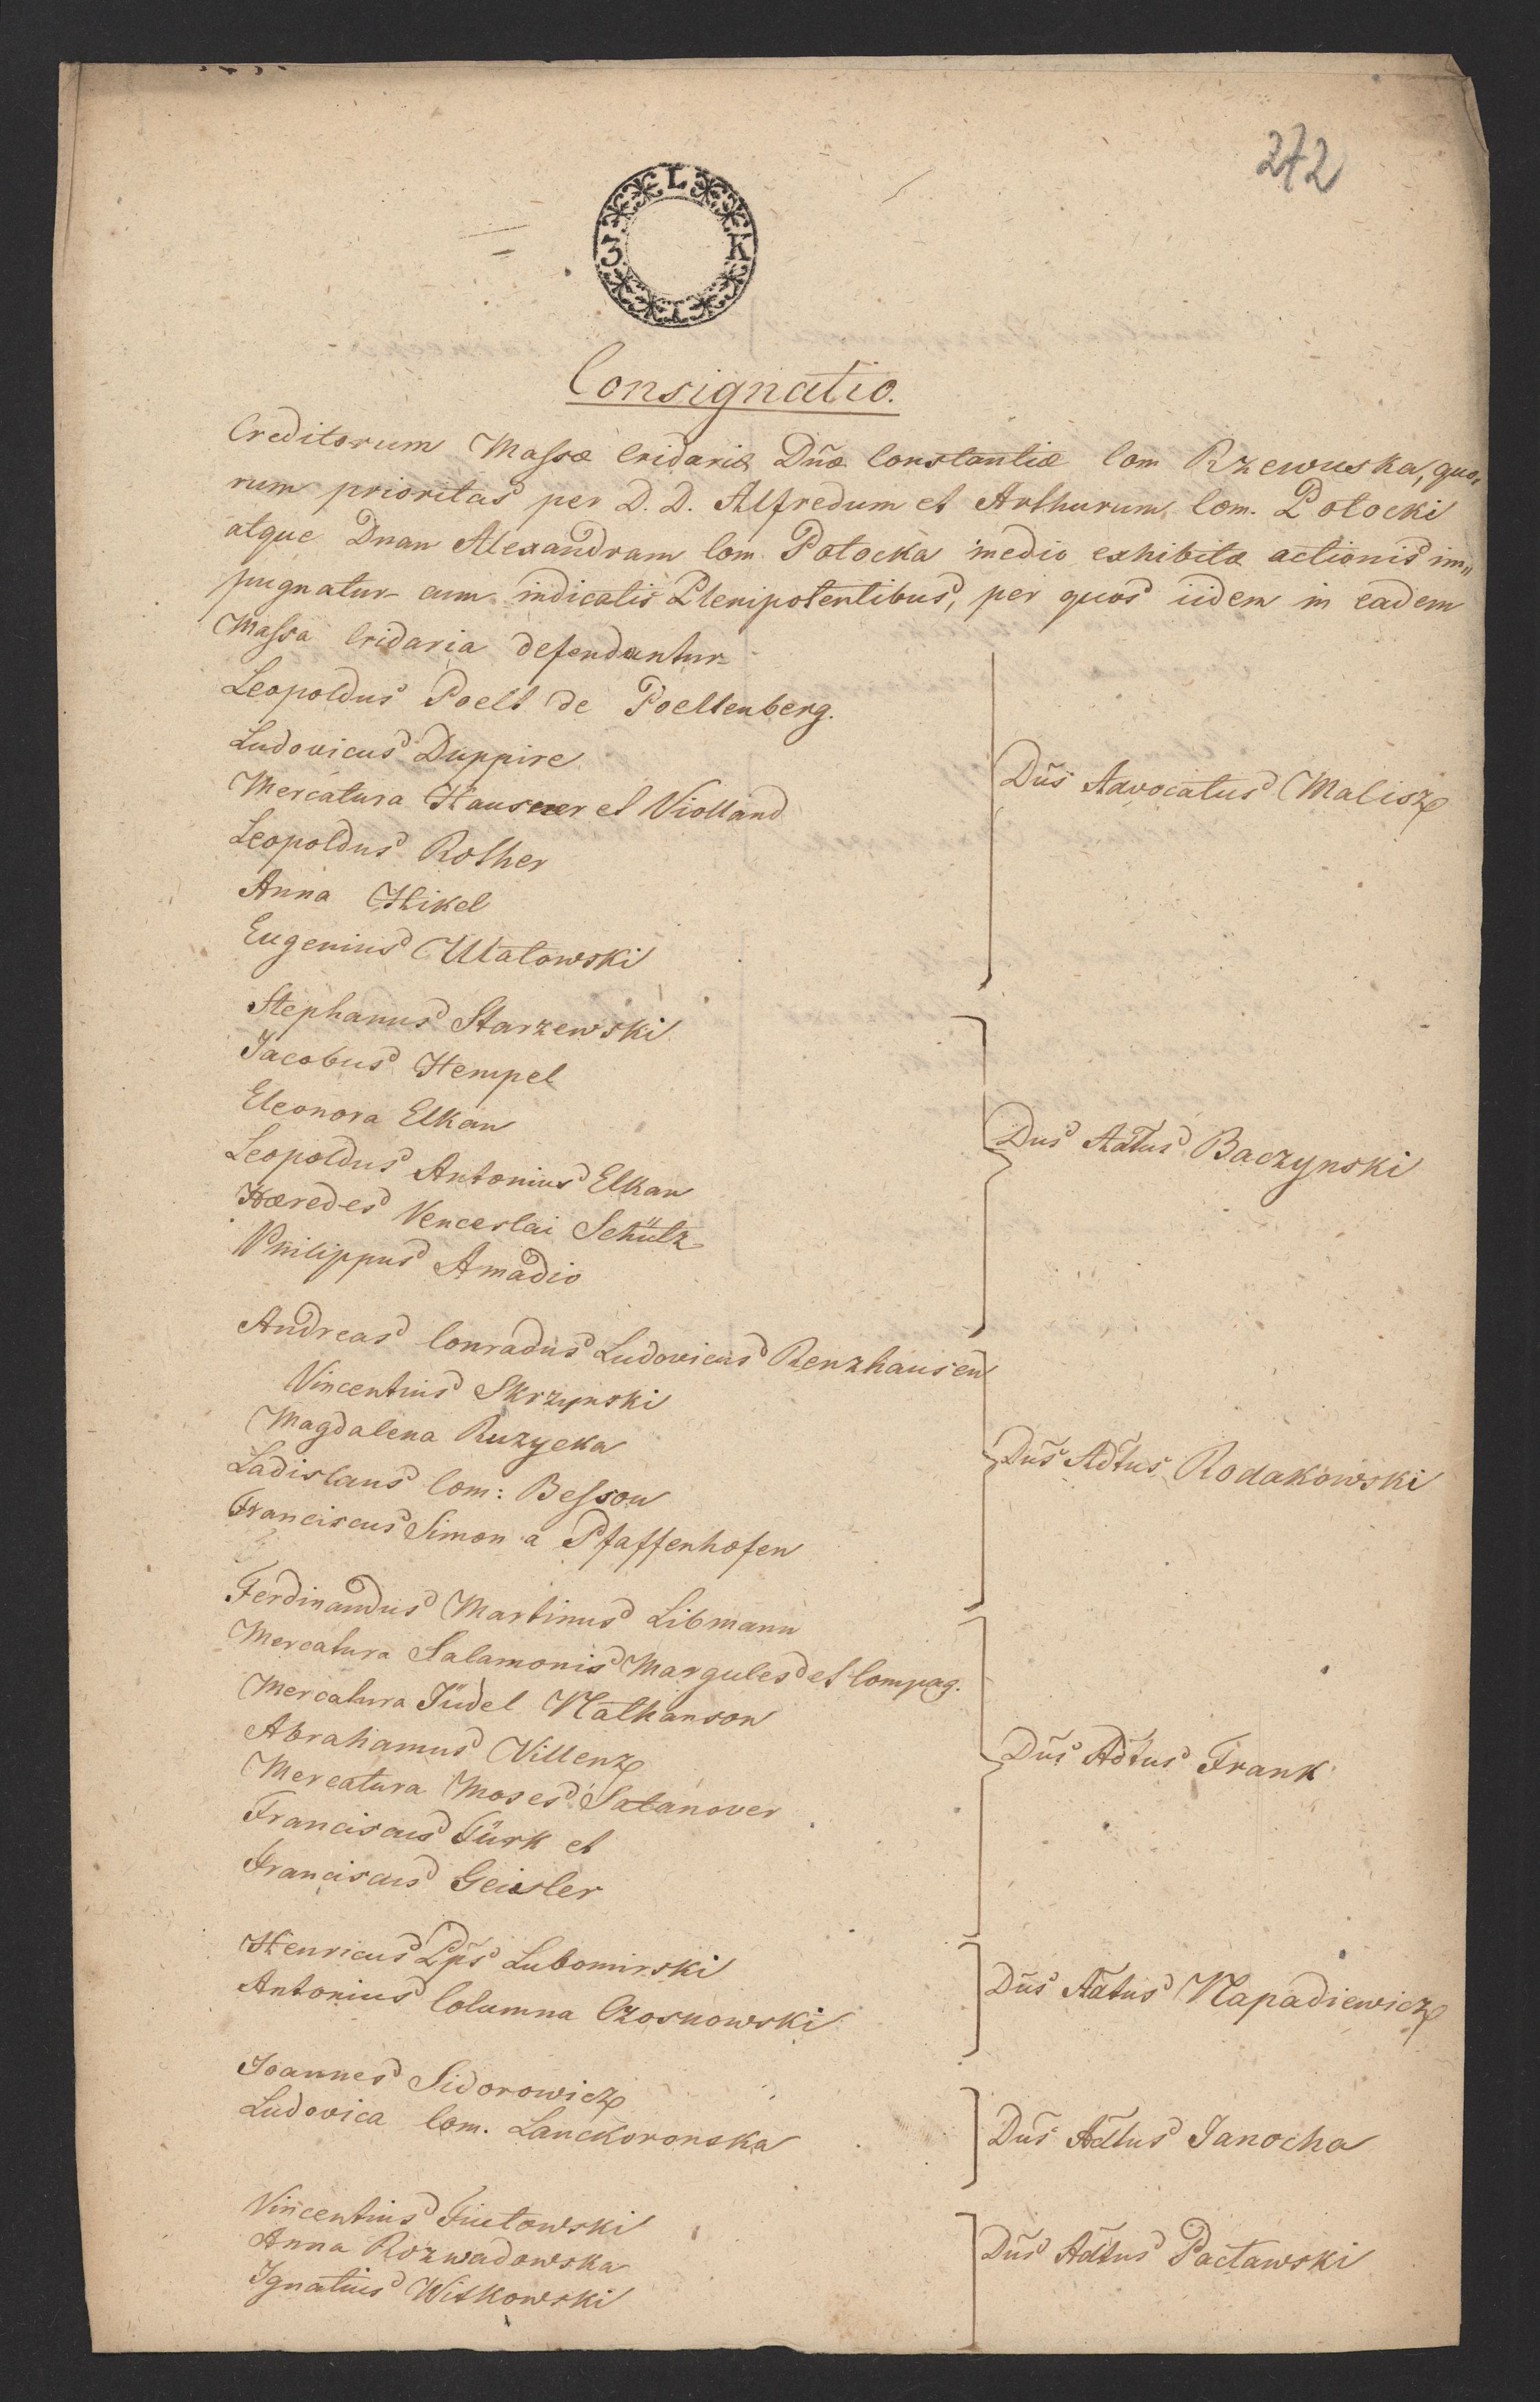 272
L
3 K
I
Consignatio.
Creditorum Massæ Cridariæ Dn̄æ Constantiæ Com Rzewuska, quo„
rum prioritas per D. D. Alfredum et Arthurum Com. Potocki
atque Dnan Alexandram Com Potocka medio exhibitæ actionis im„
pugnatur cum indicatis Plenipotentibus, per quos iidem in eadem
Massa Cridaria defenduntur
Leopoldus Poelt de Poeltenberg.
Ludovicus Duppire
Mercatura Hausner et Violland
Dn̄s Advocatus Malisz
Leopoldus Rother
Anna Hikel
Eugenius Ulatowski
Stephanus Starzewski
Jacobus Hempel
Eleonora Elkan
Dn̄s Adtus Baczynski
Leopoldus Antonius Elkan
Hæredes Venceslai Schütz
Philippus Amadio
Andreas Conradus Ludovicus Renzhausen
Vincentius Skrzynski
Magdalena Ruzycka
Dn̄s Adtus Rodakowski
Ladislaus Com: Besson
Franciscus Simon a Pfaffenhofen
Ferdinandus Martinus Libmann
Mercatura Salamonis Margules et Compag.
Mercatura Jüdel Nathanson
Abrahamus Villenz
Dn̄s Adtus Frank
Mercatura Moses Satanover
Franciscus Türk et
Franciscus Geissler
Henricus Pp̄s Lubomirski
Dn̄s Adtus Napadiewicz
Antonius Columna Czosnowski
Joannes Sidorowicz
Ludovica Com. Lanckoronska
Dn̄s Adtus Janocha
Vincentius
Anna Rozwadowska
Dn̄s Adtus Pactawski
Ignatius Witkowski